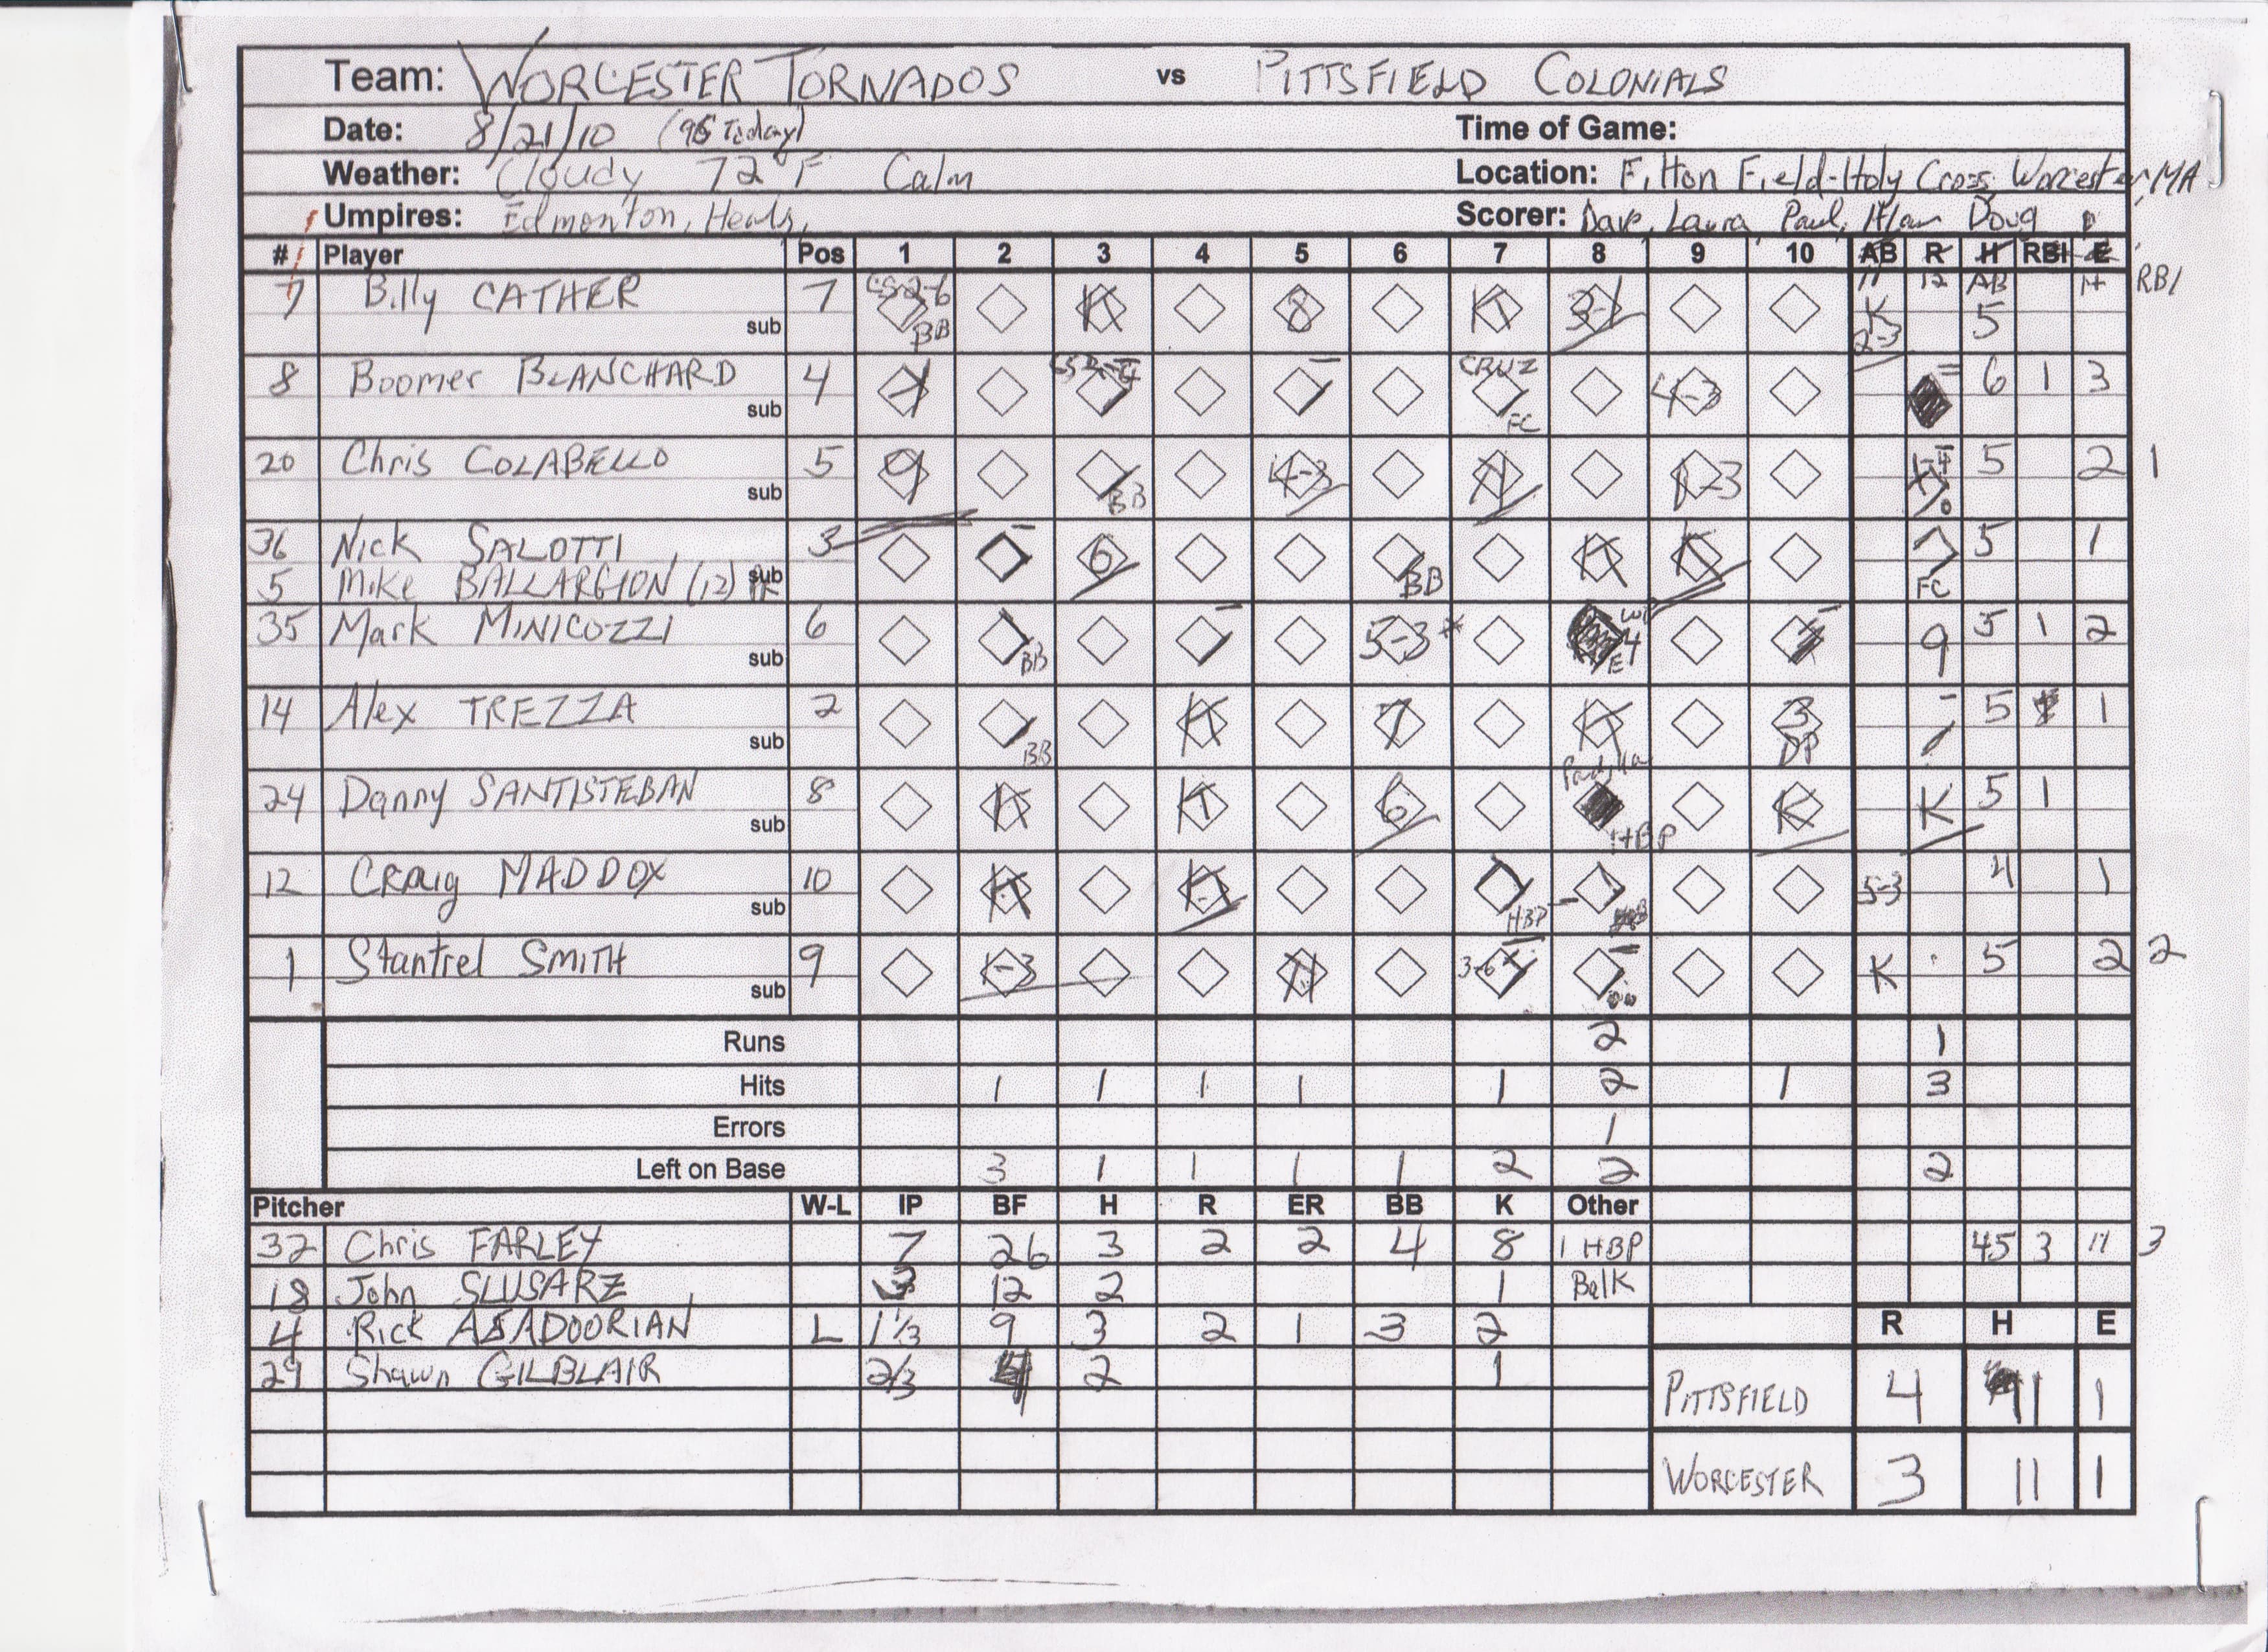 Team: WORCESTER TORNADOS vs PITTSFIELD COLONIALS
Date: 8/21/10 (95 Today) Time of Game:
Weather: Cloudy 72°F Calm Location: Fitton Field-Holy Cross, Worcester, MA
Umpires: Edmonton, Heals, Scorer: Dave, Laura, Paul, Alan Doug
# Player Pos 1 2 3 4 5 6 7 8 9 10 AB R H RBI E
11 12 AB H RBI
7 Billy CATHER 7 CS 2-6 BB K 8 K 3-1 K 2-3 5
sub
8 Boomer BLANCHARD 4 7 CRUZ FC 4-3 6 1 3
sub
20 Chris COLABELLO 5 9 BB 4-3 1-3 5 2 1
sub
36 Nick SALOTTI 3 6 BB K K FC 5 1
5 Mike BALLARGION (12) PR sub
35 Mark MINICOZZI 6 BB 5-3* WP E4 9 5 1 2
sub
14 Alex TREZZA 2 BB K 7 K 3 DP 5 1
sub
24 Danny SANTISTEBAN 8 K K 6 Padilla HBP K K 5 1
sub
12 Craig MADDOX 10 K K HBP 5-3 4 1
sub
1 Stantrel SMITH 9 1-3 3-6 K 5 2 2
sub
Runs 2 1
Hits 1 1 1 1 1 2 1 3
Errors 1
Left on Base 3 1 1 1 1 2 2 2
Pitcher W-L IP BF H R ER BB K Other
32 Chris FARLEY 7 26 3 2 2 4 8 1 HBP 45 3 11 3
18 John SLUSARZ 3 12 2 1 Balk
4 Rick ASADOORIAN L 1 1/3 9 3 2 1 3 2 R H E
29 Shawn GILBLAIR 2/3 4 2 1
PITTSFIELD 4 11 1
WORCESTER 3 11 1